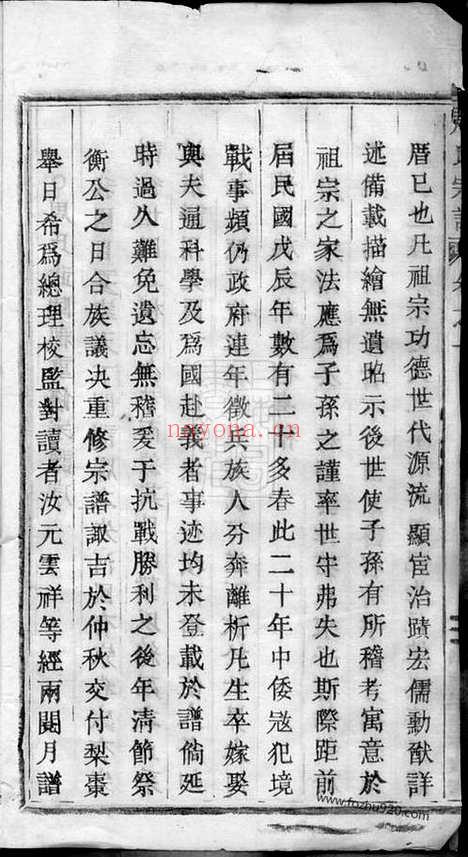 曆已也凡祖宗功德世代源流顯宦治蹟宏儒勳猷詳
述備載描繪無遺昭示後世使子孫有所稽考寓意於
祖宗之家法應爲子孫之謹率世守弗失也斯際距前
屆民國戊辰年數有二十多春此二十年中倭寇犯境
戰事頻仍政府連年徵兵族人分奔離析凡生卒嫁娶
與夫通科學及爲國赴義者事迹均未登載於譜倘延
時過久難免遺忘無稽爰于抗戰勝利之後年清節祭
衡公之日合族議決重修宗譜諏吉於仲秋交付梨棗
舉日希爲總理校監對讀者汝元雲祥等經兩閱月譜
氏宗譜
nayona.cn
www.fozhu920.com